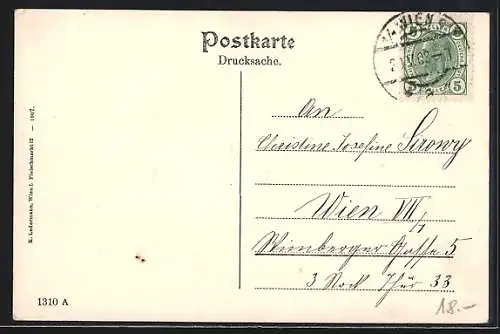 Postkarte
Drucksache.
WIEN
5 5
An
Christine Josefine Sirowy
Wien VII/1
Wimberger Gasse 5
3 Stock Thür 33
18.-
1310 A
K. Ledermann, Wien I. Fleischmarkt 12 — 1907.